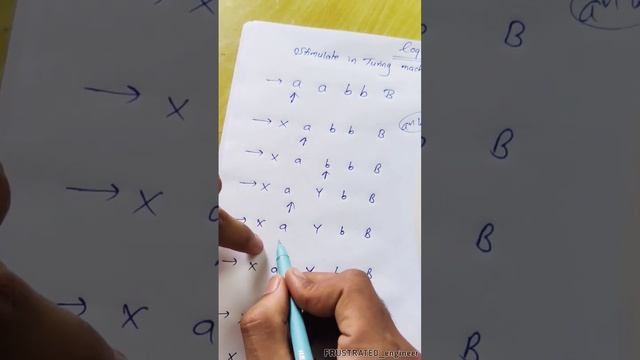 log
Ostimulate in Turing mach
→ a a b b B
↑
→ X a b b B
↑
→ X a b b B
↑
→ X a Y b B
↑
→ X a Y b B
→ X a Y b B
X
FRUSTRATED_engineer